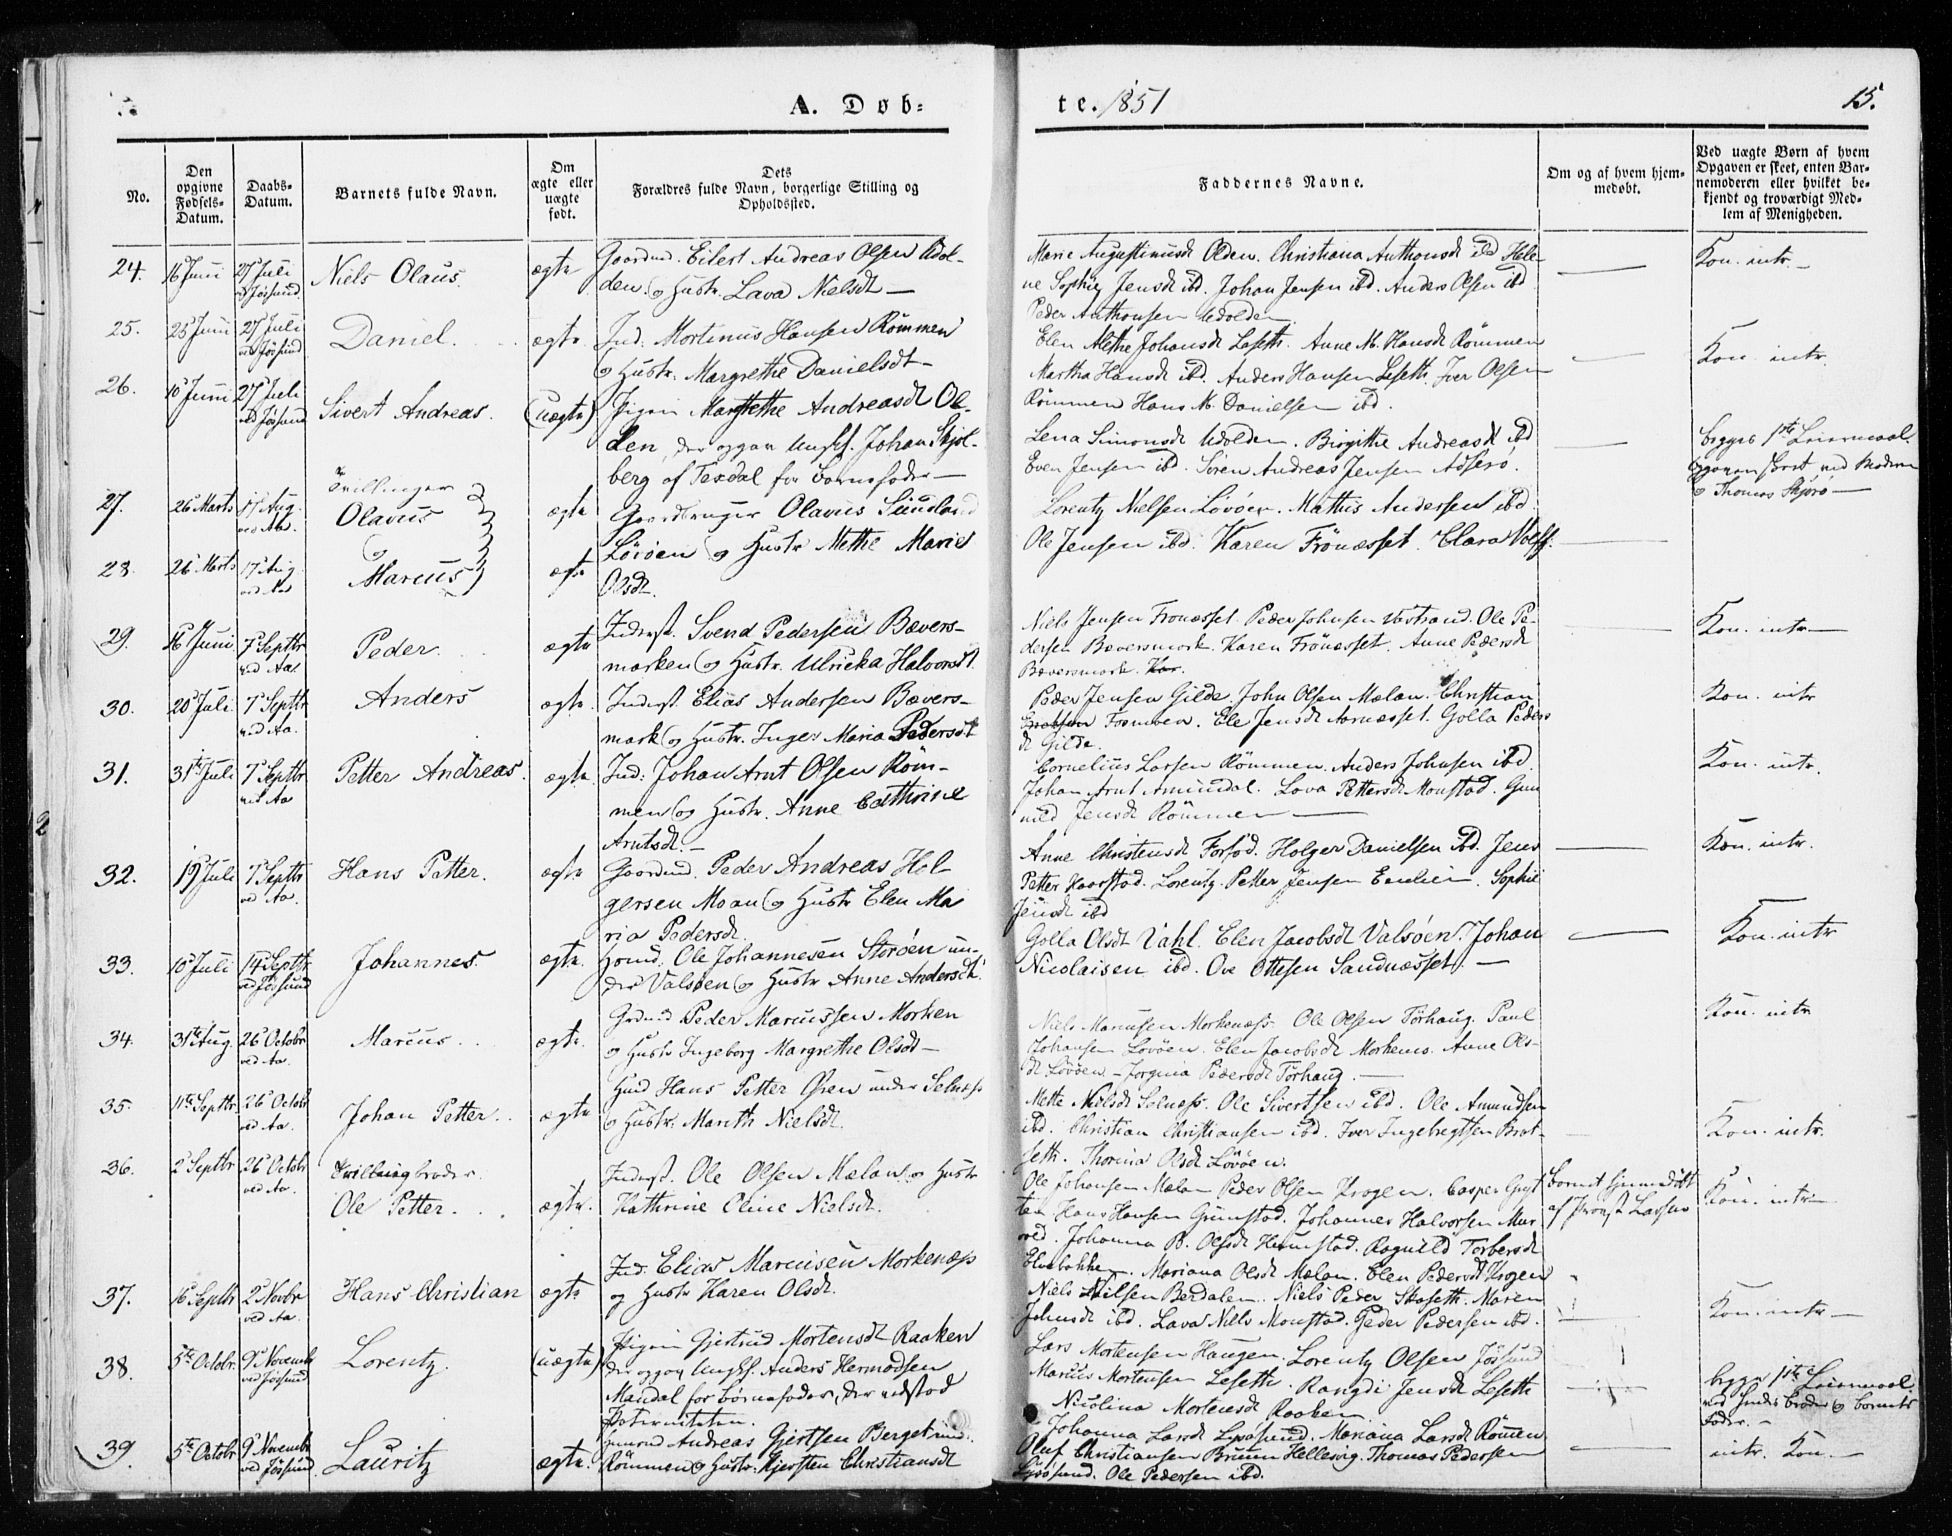 A. Døb-
te. 1851
15.
No.
Den opgivne Fødsels-Datum.
Daabs-Datum.
Barnets fulde Navn.
Om ægte eller uægte født.
Dets
Forældres fulde Navn, borgerlige Stilling og
Opholdssted.
Faddernes Navne.
Om og af hvem hjem-
medøbt.
Ved uægte Børn af hvem
Opgaven er skeet, enten Bar-
nemoderen eller hvilket be-
kjendt og troværdigt Med-
lem af Menigheden.
24. 16 Juni 27 Juli ved Jøssund Niels Olaus. ægte
Gaardmd. Eilert Andreas Olsen Udol-
den (og Hustr. Lava Nielsdt —
Marie Augustinusdt Olden. Christiana Anthonsdt ibd Hele-
ne Sophie Jensdt ibd. Johan Jensen ibd. Anders Olsen ibd
Peder Anthonsen Udolden
Kon. intr.
25. 25 Juni 27 Juli ved Jøssund Daniel. ægte
Ind. Mortinus Hansen Rømmen
og Hustr. Margrethe Danielsdt —
Elen Alethe Johansdt Leseth. Anne M. Hansdt Rømmen
Martha Hansdt ibd. Anders Hansen Leseth. Iver Olsen
Rømmen Hans M. Danielsen ibd.
Kon. intr.
26. 10 Juni 27 Juli ved Jøssund Sivert Andreas. (uægte)
Pigen Margrethe Andreasdt Ol-
den, der opgav Ungkf. Johan Skjol-
berg af Texdal for Barnefader —
Lena Simonsdt Udolden. Birgithe Andreasdt ibd
Even Jensen ibd. Søren Andreas Jensen Asserø.
begges 1ste Leiermaal.
Opgaven skeet ved Moderen
og Thomas Skjørø —
27. 26 Marts 17 Aug. ved Aa. Tvillinger Olavus ægte
Gaardbruger Olavus Sundland
Løvøen (og Hustr Methe Marie
Olsdt.
Lorentz Nielsen Løvøen. Mathis Andersen ibd
Ole Jensen ibd. Karen Frönæsset. Clara Wolff.
28. 26 Marts 17 Aug ved Aa og Marcus ægte
29. 16 Juni 7 Septbr ved Aa. Peder. ægte
Inderst. Svend Pedersen Bævers-
marken (og Hustr. Ulricka Halvorsdt.
Niels Jensen Frönæsset. Peder Johnsen Vestrand. Ole Pe-
dersen Bæversmark. Karen Frönæsset. Anne Pedersdt
Bæversmark.
Kon. intr. —
30. 20 Juli 7 Septbr ved Aa. Anders ægte.
Inderst. Elias Andersen Bævers-
mark (og Hustr. Inger Maria Pedersdt
Peder Jensen Gilde. John Olsen Mælan. Christian
Fosmoen. Ele Jensdt Aarnæsset. Golla Peders
dt Gilde.
Kon. intr
31. 31te Juli 7 Septbr ved Aa Petter Andreas. ægte.
Ind: Johan Arnt Olsen Röm-
men (og Hustr. Anne Cathrine
Arntsdt. —
Cornelius Larsen Rømmen. Anders Johnsen ibd.
Johan Arnt Amundal. Lova Pettersdt Monstad. Gun
nild Jensdt Rømmen —
Kon. intr.
32. 19 Juli 7 Septbr ved Aa. Hans Petter. ægte
Gaardmd. Peder Andreas Hol-
gersen Moan (og Hustr Elen Ma
ria Pedersdt.
Anne Christensdt Forfod. Holger Danielsen ibd. Jens
Petter Haarstad. Lorentz Petter Jensen. Sophie
Jensdt ibd
Kon. intr.
33. 10 Juli 14 Septbr ved Jøssund Johannes. ægte.
Hvmd. Ole Johannesen Storöen un-
der Valsøen (og Hustr Anne Andersdt.
Golla Olsdt Vahl. Elen Jacobsdt Valsöen. Johan
Nicolaisen ibd. Ove Ottesen Sandnæsset. —
Kon. intr
34. 31te Aug 26 Octobr ved Aa. Marcus. ægte.
Grdmd Peder Marcussen Morken
og Hustr Ingeborg Margrethe Olsdt —
Niels Marcusen Morkenæss. Ole Olsen Törhaug. Paul
Johansen Lovöen. Elen Jacobsdt Morkenæs. Anne Ols-
dt Lövöen — Jorgina Pedersdt Törhaug. —
Kon. intr
35. 11te Septbr 26 Octobr ved Aa. Johan Petter. ægte
Hmd Hans Petter Osen under Selnæss
(og Hustr: Marith Nielsdt.
Mette Nielsdt Selnæss. Ole Sivertsen ibd. Ole Amundsen
ibd. Christian Christiansen ibd. Iver Ingebregtsen Brat-
seth. Thorina Olsdt Lövöen.
Kon. intr.
36. 2 Septbr 26 Octobr ved Aa Tvillingbroder. Ole Petter. ægte.
Inderst. Ole Olsen Mælan og Hustr
Kathrine Oline Nielsdt.
Ole Johansen Mælan Peder Olsen Krogen. Casper Grut
ten Hans Hansen Grimstad. Johannes Halvorsen Mur
ved. Johanna B. Olsdt Harmstad. Ragnild Torbersdt
Elvebakken. Mariana Olsdt Mælan. Elen Pedersdt Krogen
Barnet hjemmedöbt
af Provst Lassen
Kon. intr —
37. 16 Septbr 2 Novbr ved Aa. Hans Christian ægte
Ind. Elias Marcusen Morkenæss
og Hustr Karen Olsdt.
Niels Nilsen Berdalen. Niels Peder Skaseth. Maren
Johnsdt ibd. Lava Niels Monstad. Peder Pedersen ibd.
Kon. intr —
38. 5te Octobr. 9 Novembr ved Jøssund Lorentz. (uægte)
Pigen Gjertrud Mortensdt Raaken
der opgav Ungkf. Anders Hermodsen
Mandal for Børnefader, der vedstod
Paterniteten.
Lars Mortensen Haugen. Lorentz Olsen Jössund
Marcus Mortensen Leseth. Rangdi Jensdt Leseth
Nicolina Mortensdt Raaken
begges 1ste Leiermaal.
ved Indes broder og Barnets
Fader. —
39. 5te Octobr 9 Novembr ved Jøssund Lauritz ægte.
Huusmd Andreas Gjertsen Berget und.
Römmen (og Hustr. Kjersten Christiansdt
Johanna Larsdt Lysøsund. Mariana Larsdt Römen
Oluf Christiansen Bruun Hellesvig. Thomas Pedersen
Lysøsund. Ole Pedersen ibd.
intr. Kon. —